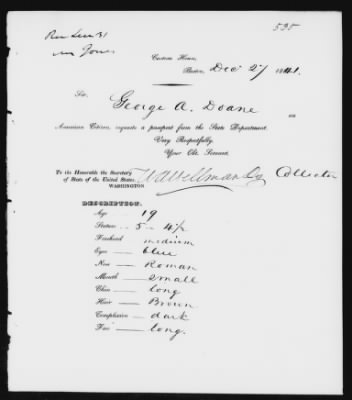 535
Custom House,
Boston, Dec 27 1841.
Sir,
George A. Doane an
American Citizen, requests a passport from the State Department.
Very Respectfully,
Your Obt. Servant.
To the Honorable the Secretary
of State of the United States.
WASHINGTON
Collector
DESCRIPTION.
Age 19
Stature 5 - 4½
Forehead medium
Eyes blue
Nose Roman
Mouth small
Chin long
Hair Brown
Complexion dark
Face long.